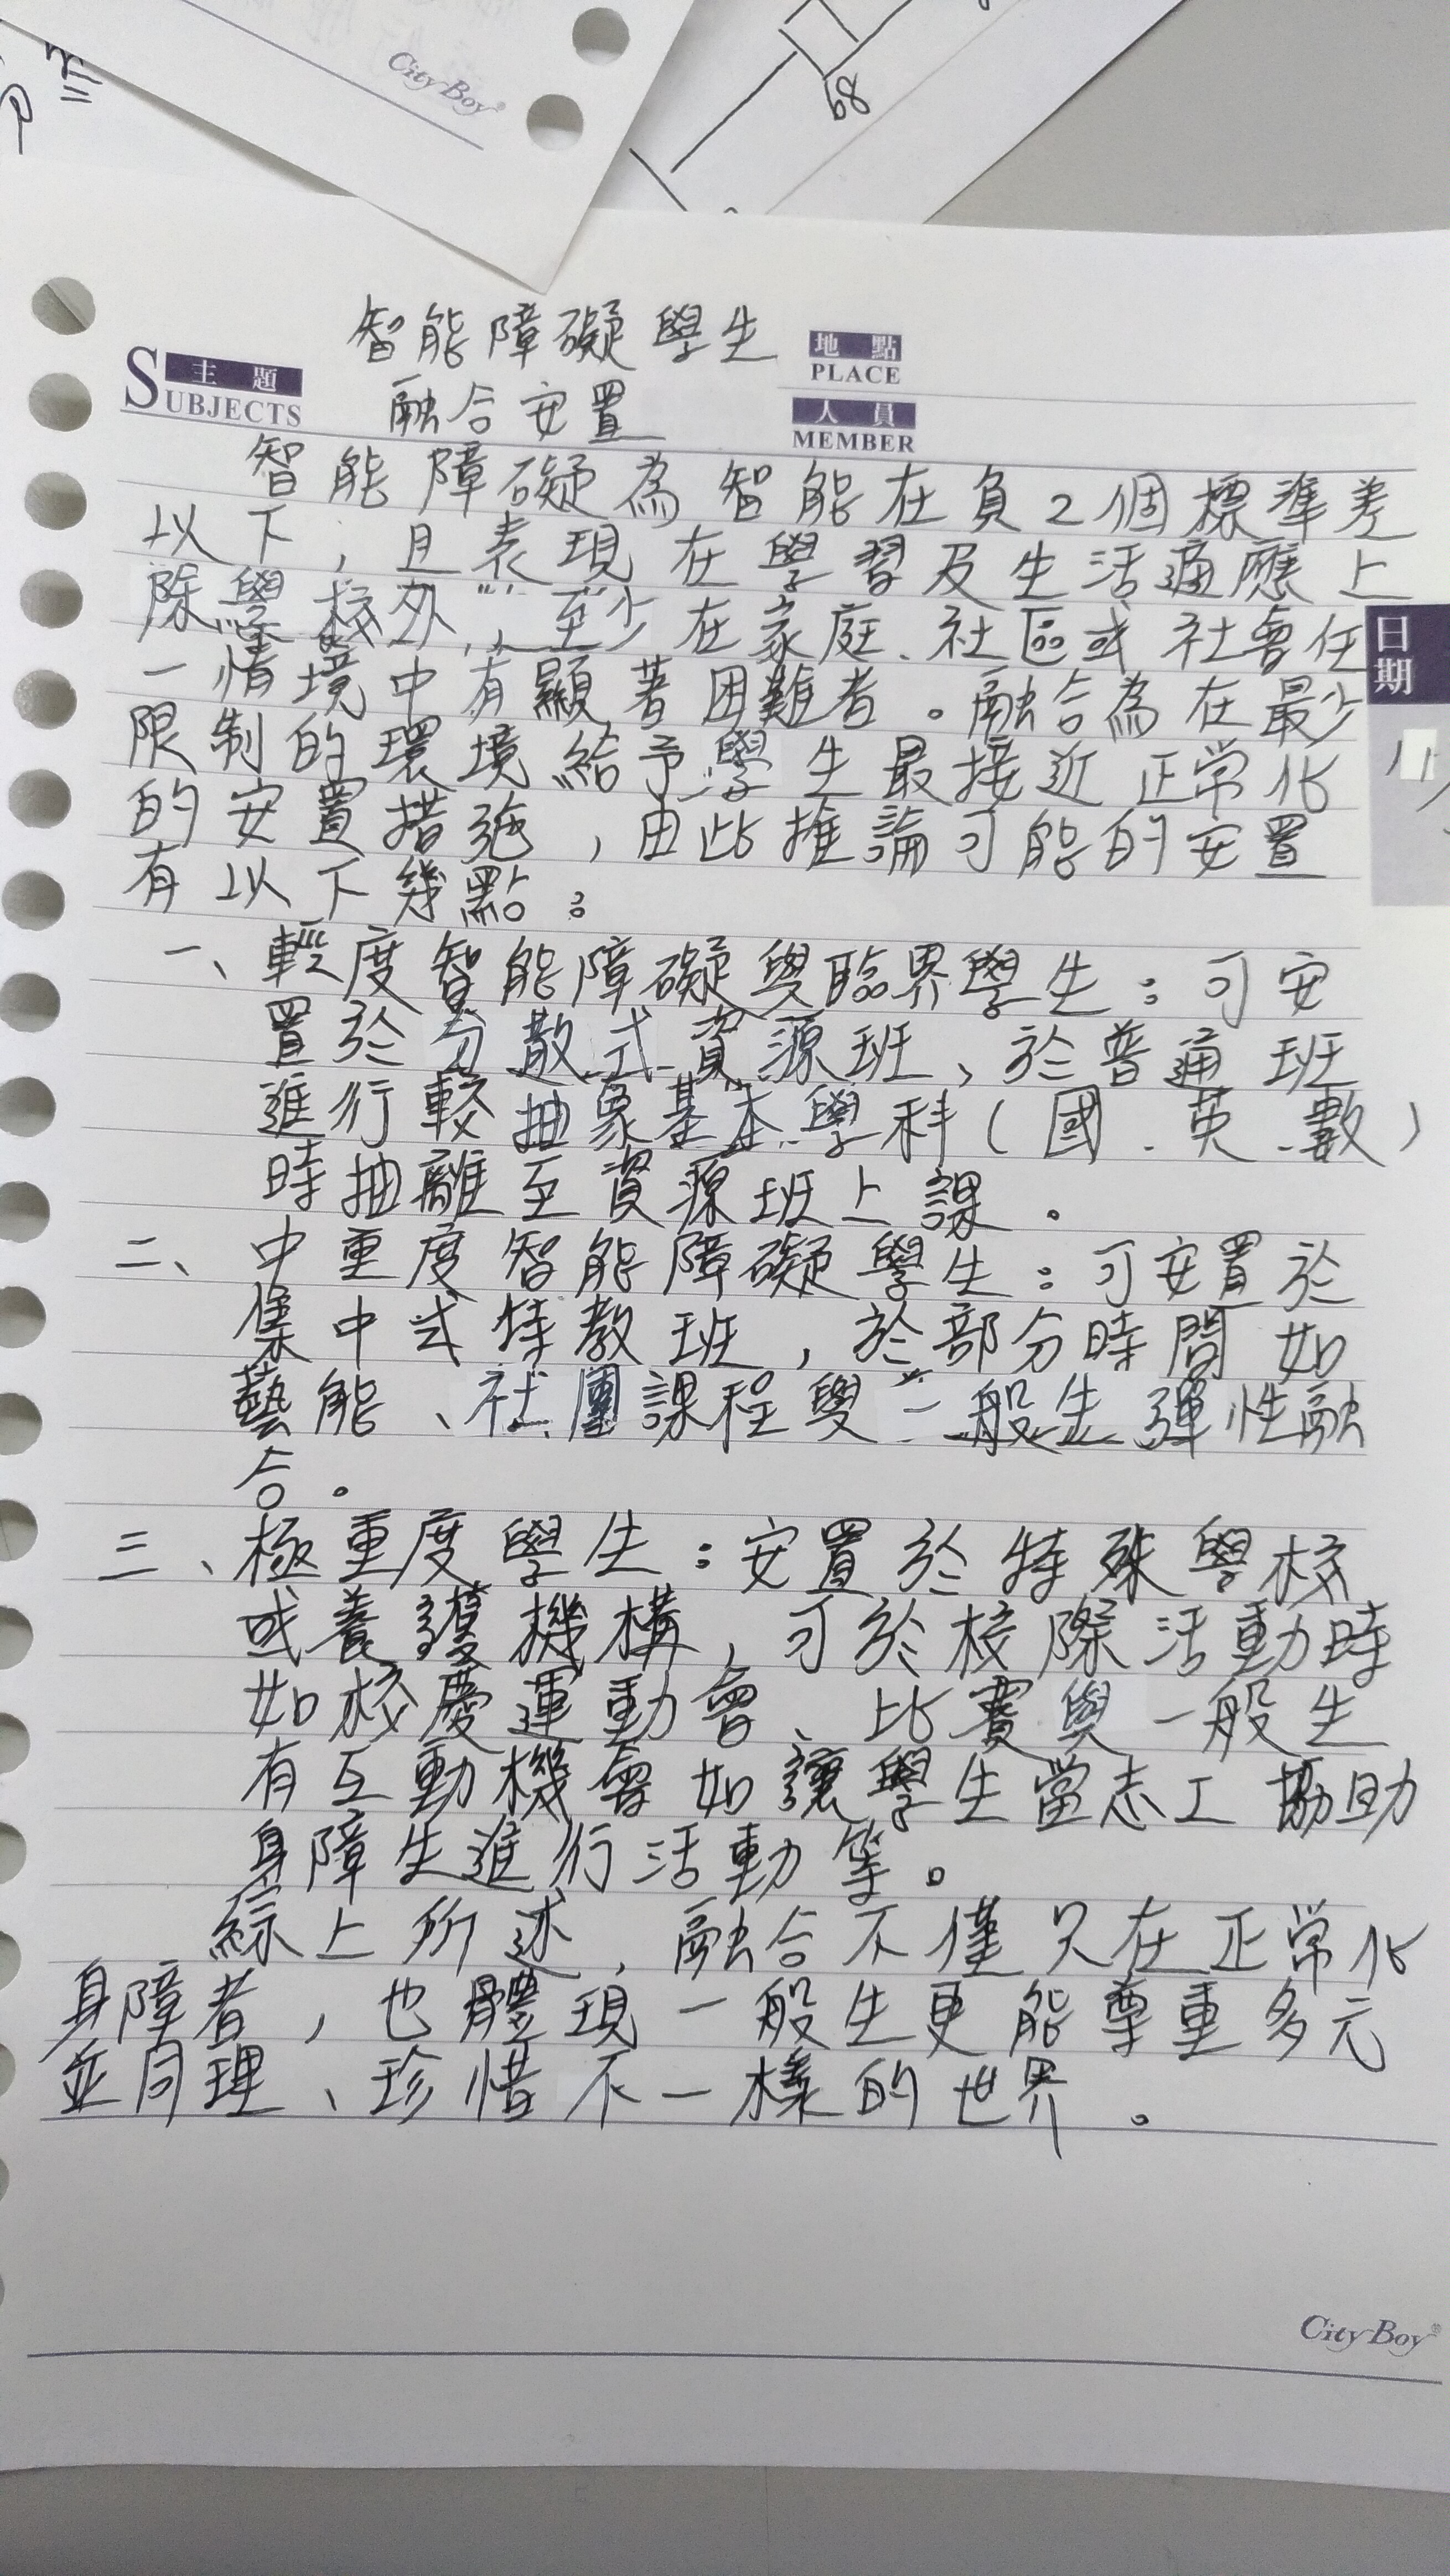 City Boy
89
智能障礙學生
主題
SUBJECTS
融合安置
地點
PLACE
人員
MEMBER
智能障礙為智能在負2個標準差
以下,且表現在學習及生活適應上
除學校外,至少在家庭、社區或社會任
一情境中有顯著困難者。融合為在最少
限制的環境給予學生最接近正常化
的安置措施,由此推論可能的安置
有以下幾點:
日期
11
一、輕度智能障礙與臨界學生:可安
置於分散式資源班、於普通班
進行較抽象基本學科(國、英、數)
時抽離至資源班上課。
二、中重度智能障礙學生:可安置於
集中式特教班,於部分時間如
藝能、社團課程與一般生彈性融
合。
三、極重度學生:安置於特殊學校
或養護機構,可於校際活動時
如校慶運動會、比賽與一般生
有互動機會如讓學生當志工協助
身障生進行活動等。
綜上所述,融合不僅只在正常化
身障者,也體現一般生更能尊重多元
並同理、珍惜不一樣的世界。
City Boy